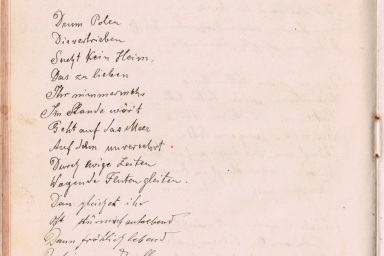 Denn Polen
Die vertrieben
Sucht kein Heim,
Das zu lieben
Ihr nimmermehr
Im Stande wärt
Geht auf das Meer
Auf dem unversehrt
Durch ewige Zeiten
Wogende Fluten gleiten.
Dem gleichet ihr
Oft stürmisch
Dann fröhlich lebend